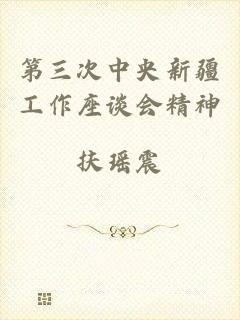 第三次中央新疆
工作座谈会精神
扶瑶震